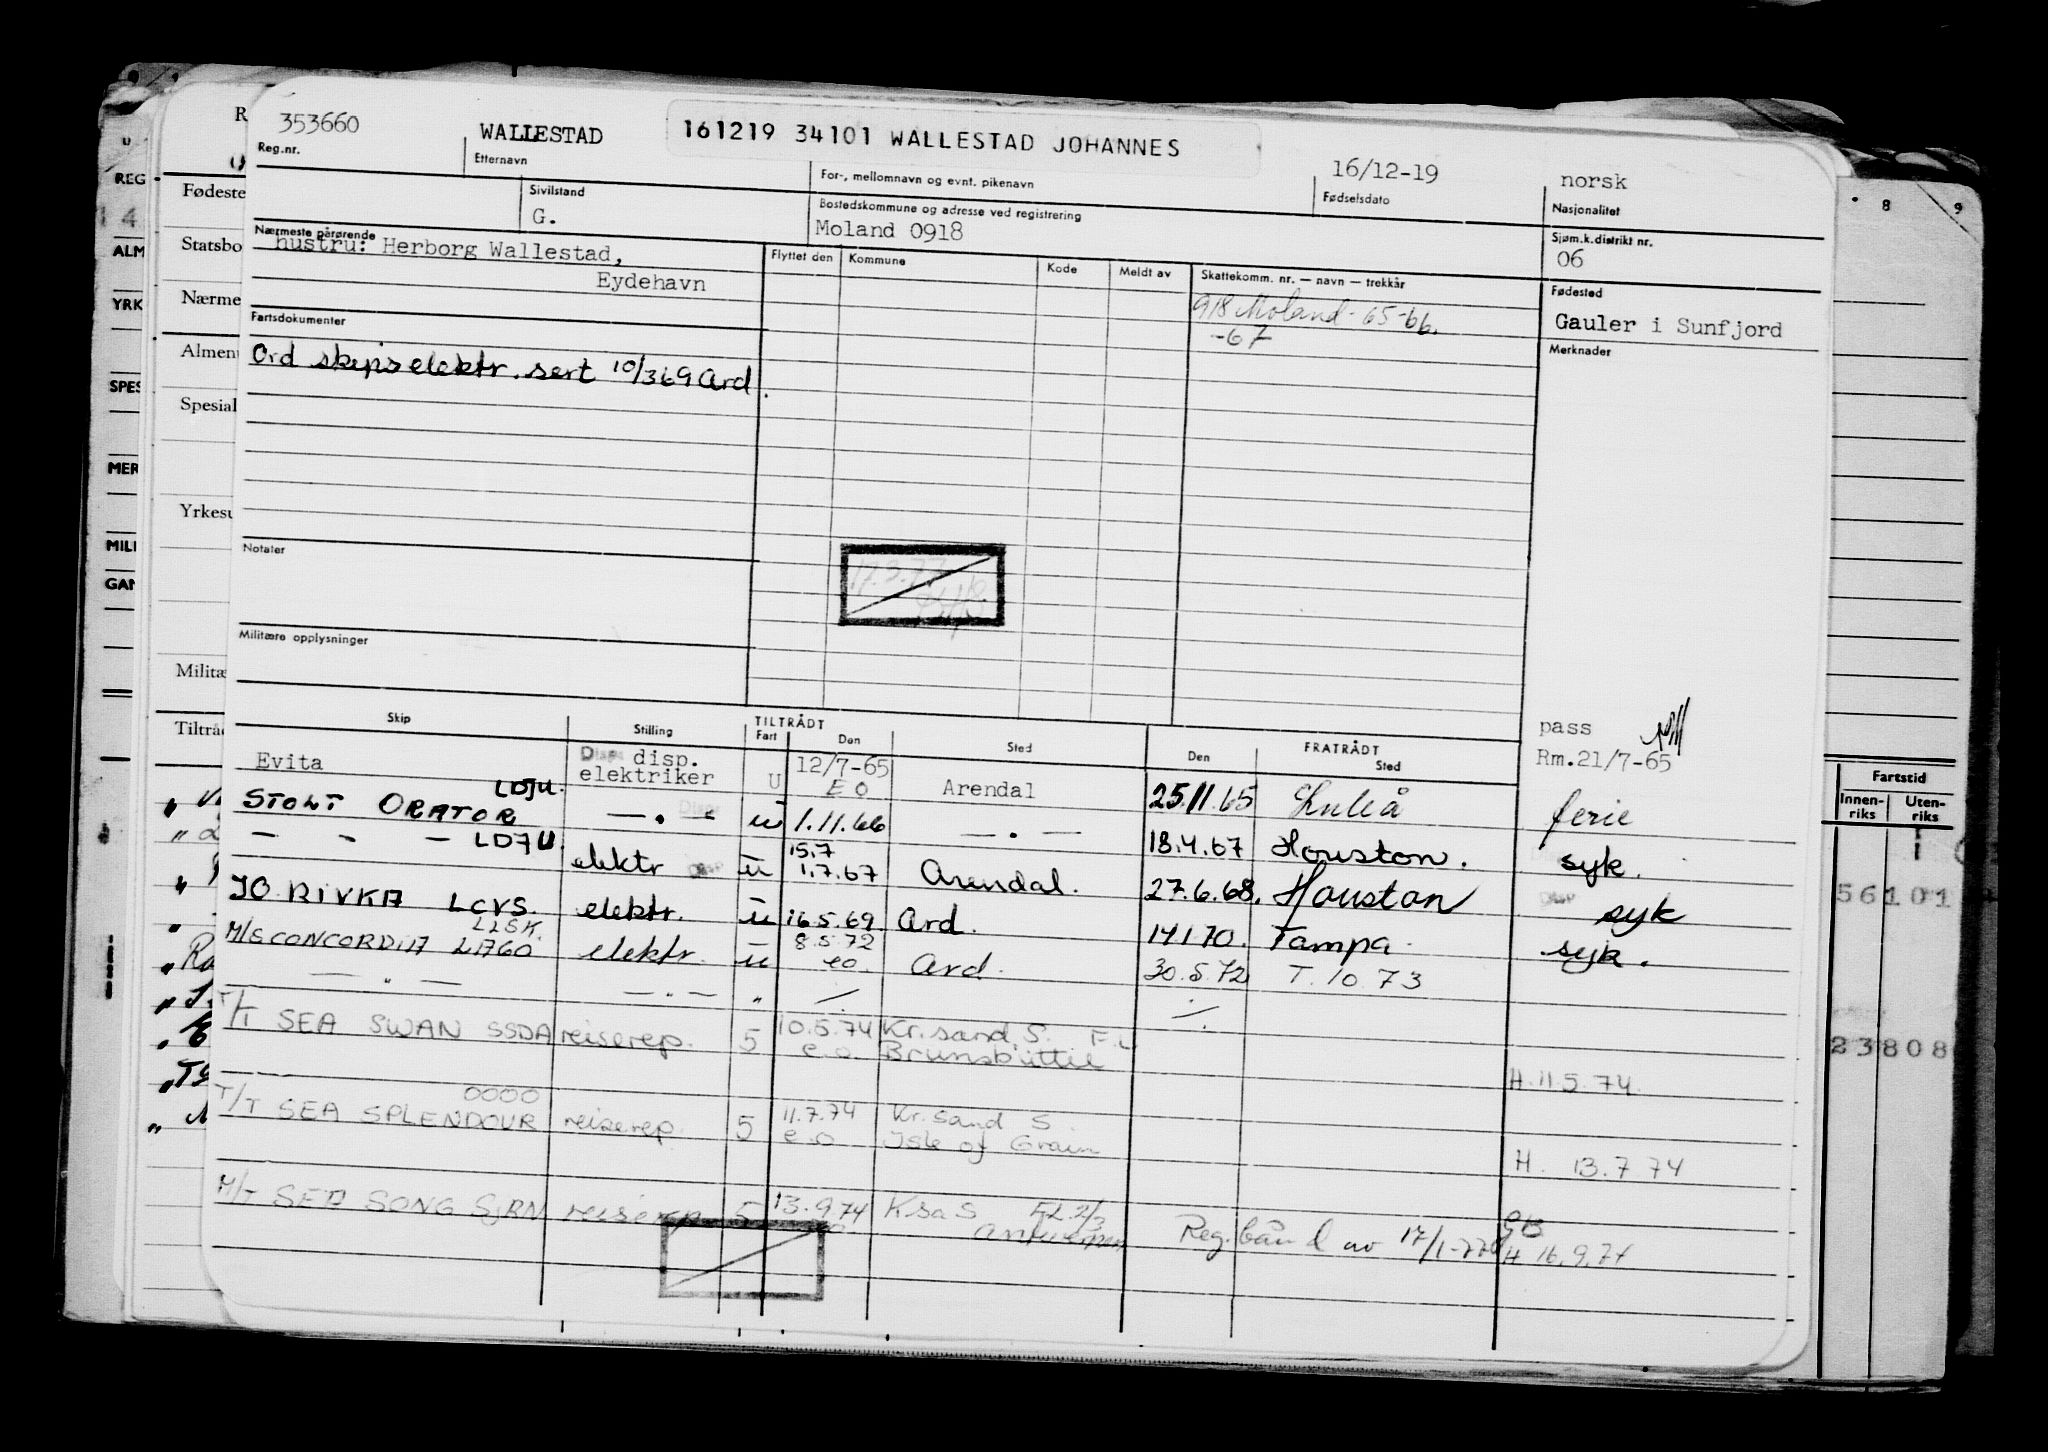 353660 WALLESTAD 161219 34101 WALLESTAD JOHANNES 16/12-19 norsk
Reg.nr. Etternavn For-, mellomnavn og evnt. pikenavn Fødselsdato Nasjonalitet
Sivilstand Bostedskommune og adresse ved registrering Sjøm.k.distrikt nr.
G. Moland 0918 06
Nærmeste pårørende Flyttet den Kommune Kode Meldt av Skattekomm. nr. — navn — trekkår Fødested
hustru: Herborg Wallestad,
Eydehavn
918 Moland - 65-66.
-67
Gauler i Sunfjord
Fartsdokumenter Merknader
Ord skipselektr. sert 10/369 Ard.
Notater
17.3.77
Militære opplysninger
Skip Stilling TILTRÅDT FRATRÅDT
Fart Den Sted Den Sted
pass
Rm.21/7-65
Evita disp. elektriker U 12/7-65 EO Arendal 25.11.65 Luleå ferie
STOLT ORATOR LDJU. — . — u 1.11.66 — . — 18.4.67 Houston. syk.
— - — LDJU. elektr u 15.7 1.7.67 Arendal. 27.6.68. Houston syk
JO RIVKA LCVS. elektr. u 16.5.69 Ard. 14.1.70. Tampa. syk.
M/S CONCORDIA LLSK. LA60 elektr. u 8.5.72 eo. Ard. 30.5.72 T.10.73
— " — — " — " ./. ./.
T/T SEA SWAN SSDA reiserep. 5 10.5.74 Kr.sand S.
e.o. Brunsbüttel
H.11.5.74.
0000
T/T SEA SPLENDOUR reiserep. 5 11.7.74 Kr.sand S.
e.o Isle of Grain
H. 13.7.74
M/T SEA SONG SJRN reiserep 5 13.9.74 KsaS FL.2/3
Reg.bånd av 17/1-77
H 16.9.74
REG
Fødeste
ALM
Statsbo
YRK
Nærme
Almen
SPES
Spesial
MER
Yrkesu
MILI
GAN
Militæ
Tiltråd
8 9
Fartstid
Innen-riks Uten-riks
56101
23808